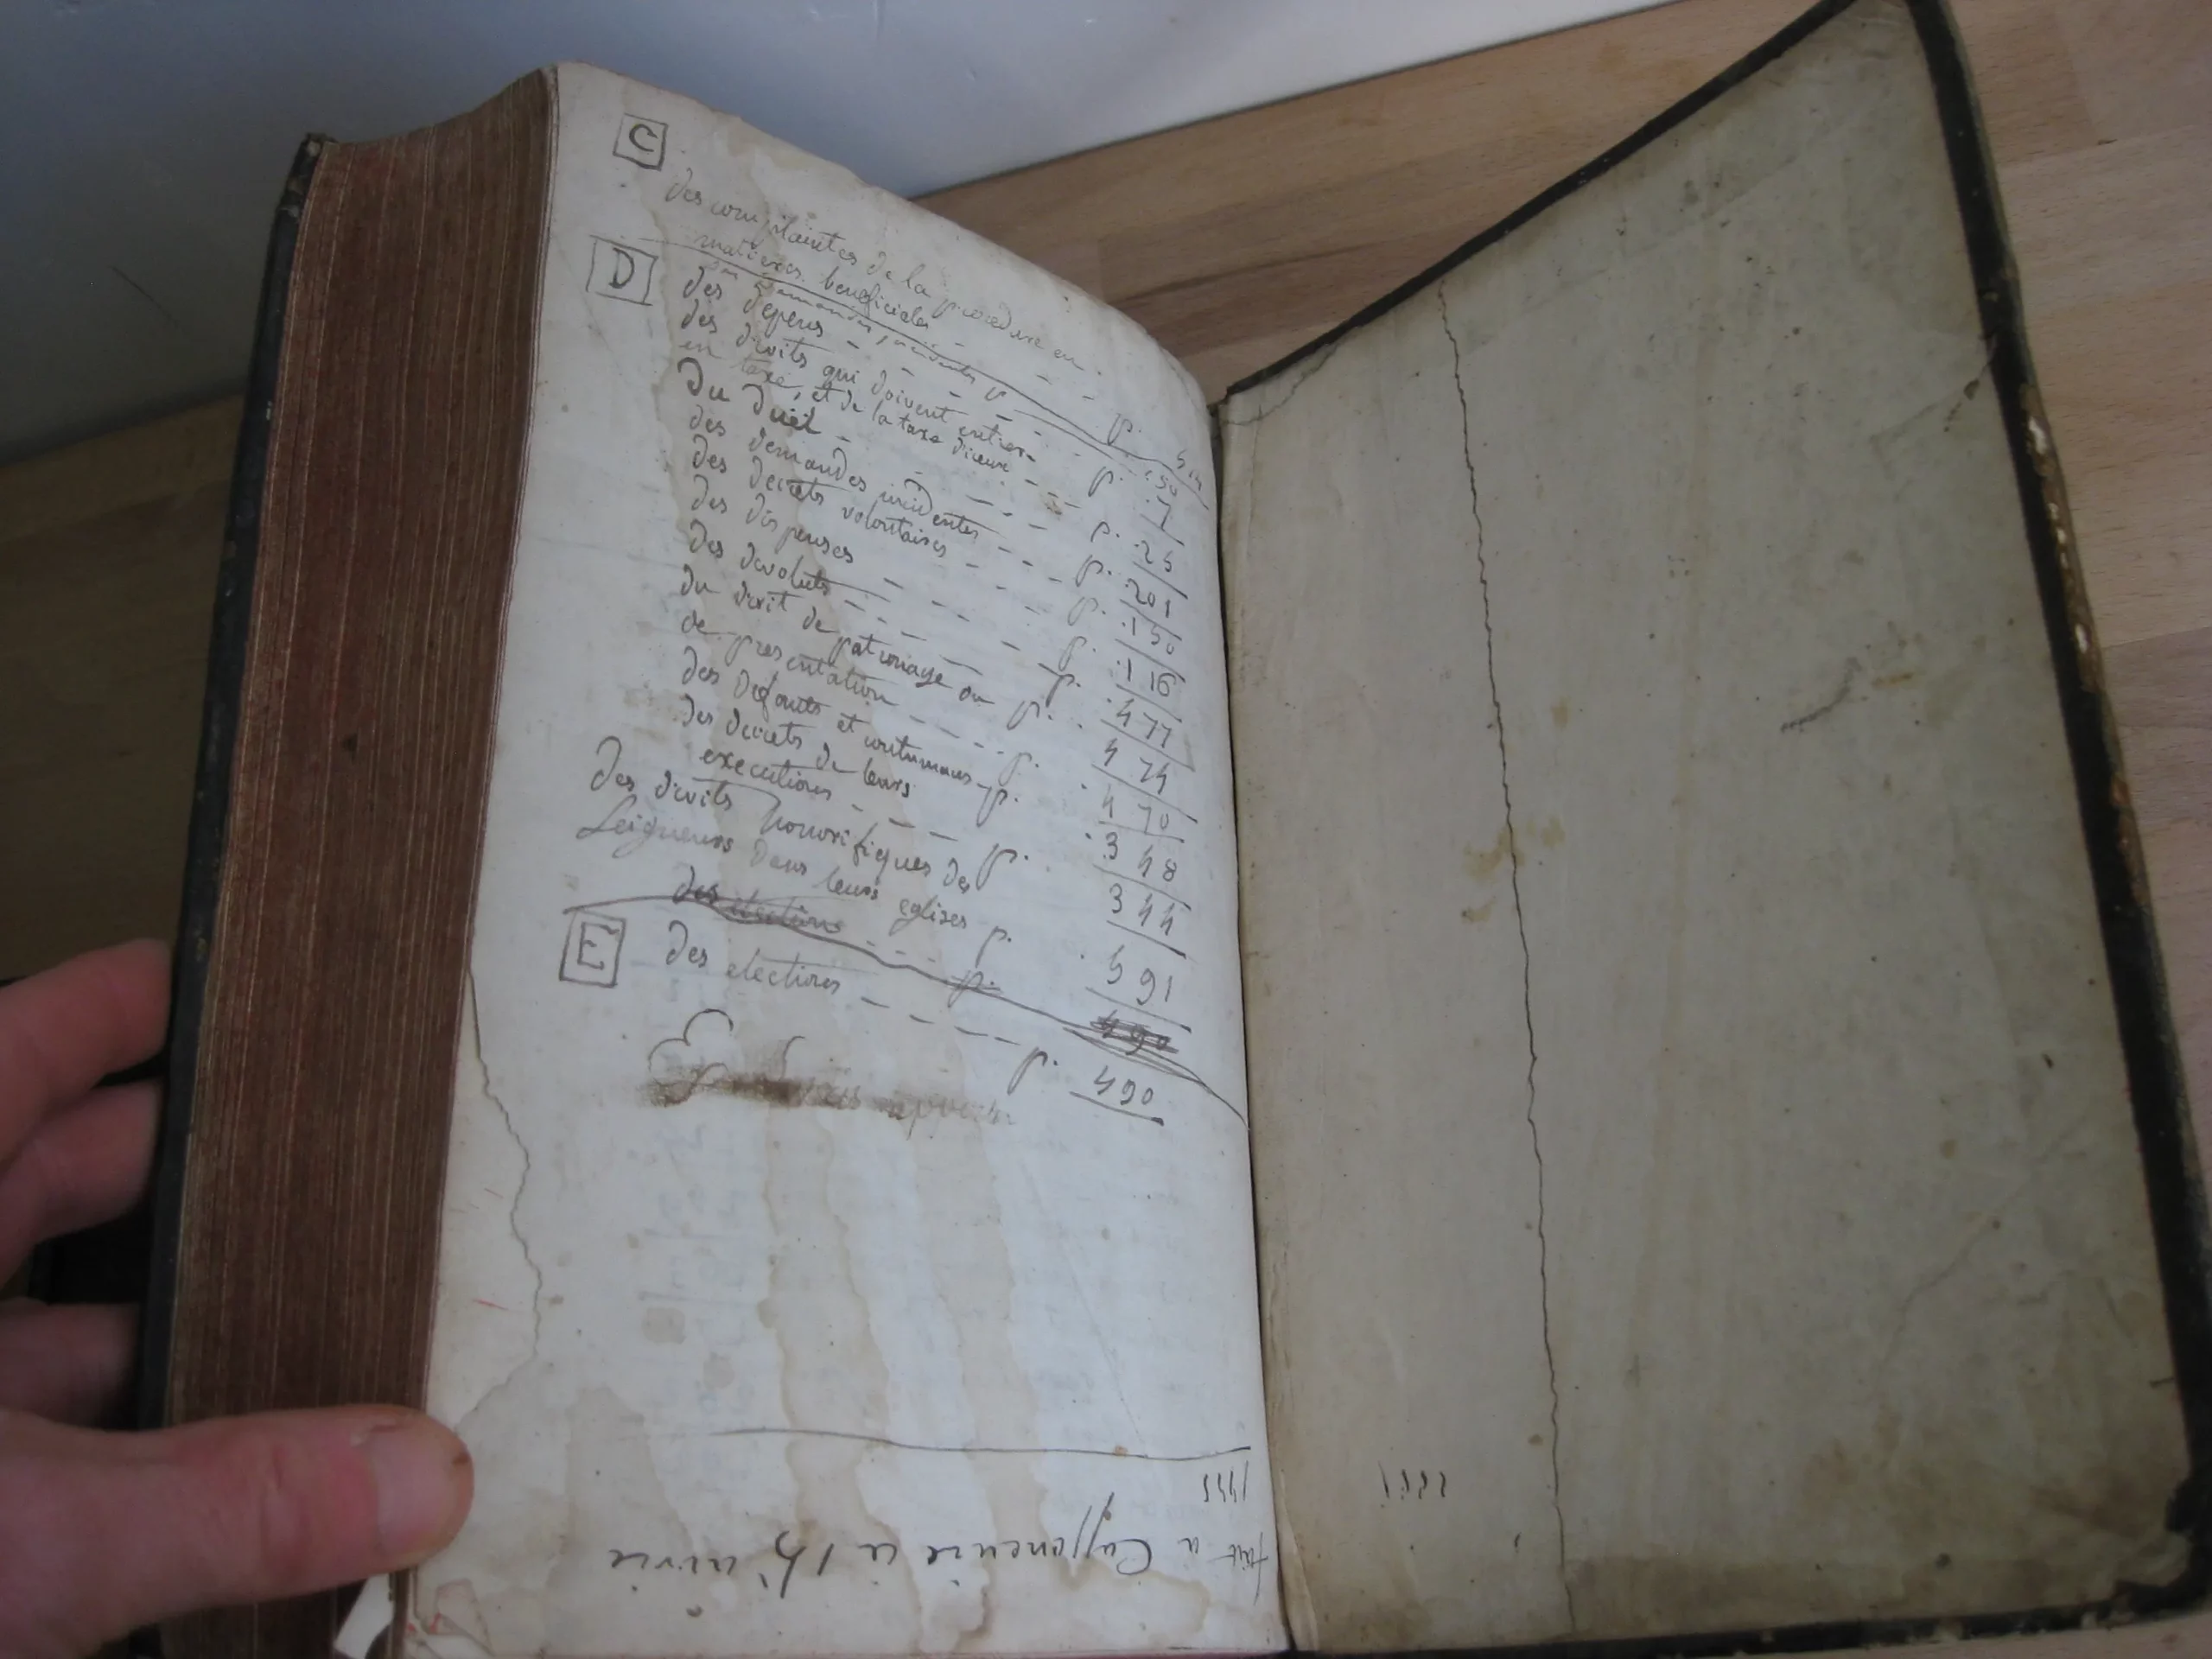 C
des complaintes de la procedure en
matieres beneficiales - - - p.
D
des depens - - - - p. 150
des droits qui doivent entrer
en taxe, et de la taxe d'iceux - - - p. 1
Du Duël - - - - p. 25
des demandes incidentes - - - p. 201
des decrets volontaires - - - - p. 150
des dispenses - - - - p. 116
des devoluts - - - - p. 477
du droit de patronage ou p. 474
de presentation - - - - p. 470
des defauts et contumaces - p. 348
des decrets de leurs
executions - - - - p. 344
Des droits honorifiques des
Seigneurs dans leurs eglises p. 591
des elections - - - p. 490
E
des elections - - - - p. 490
fait a